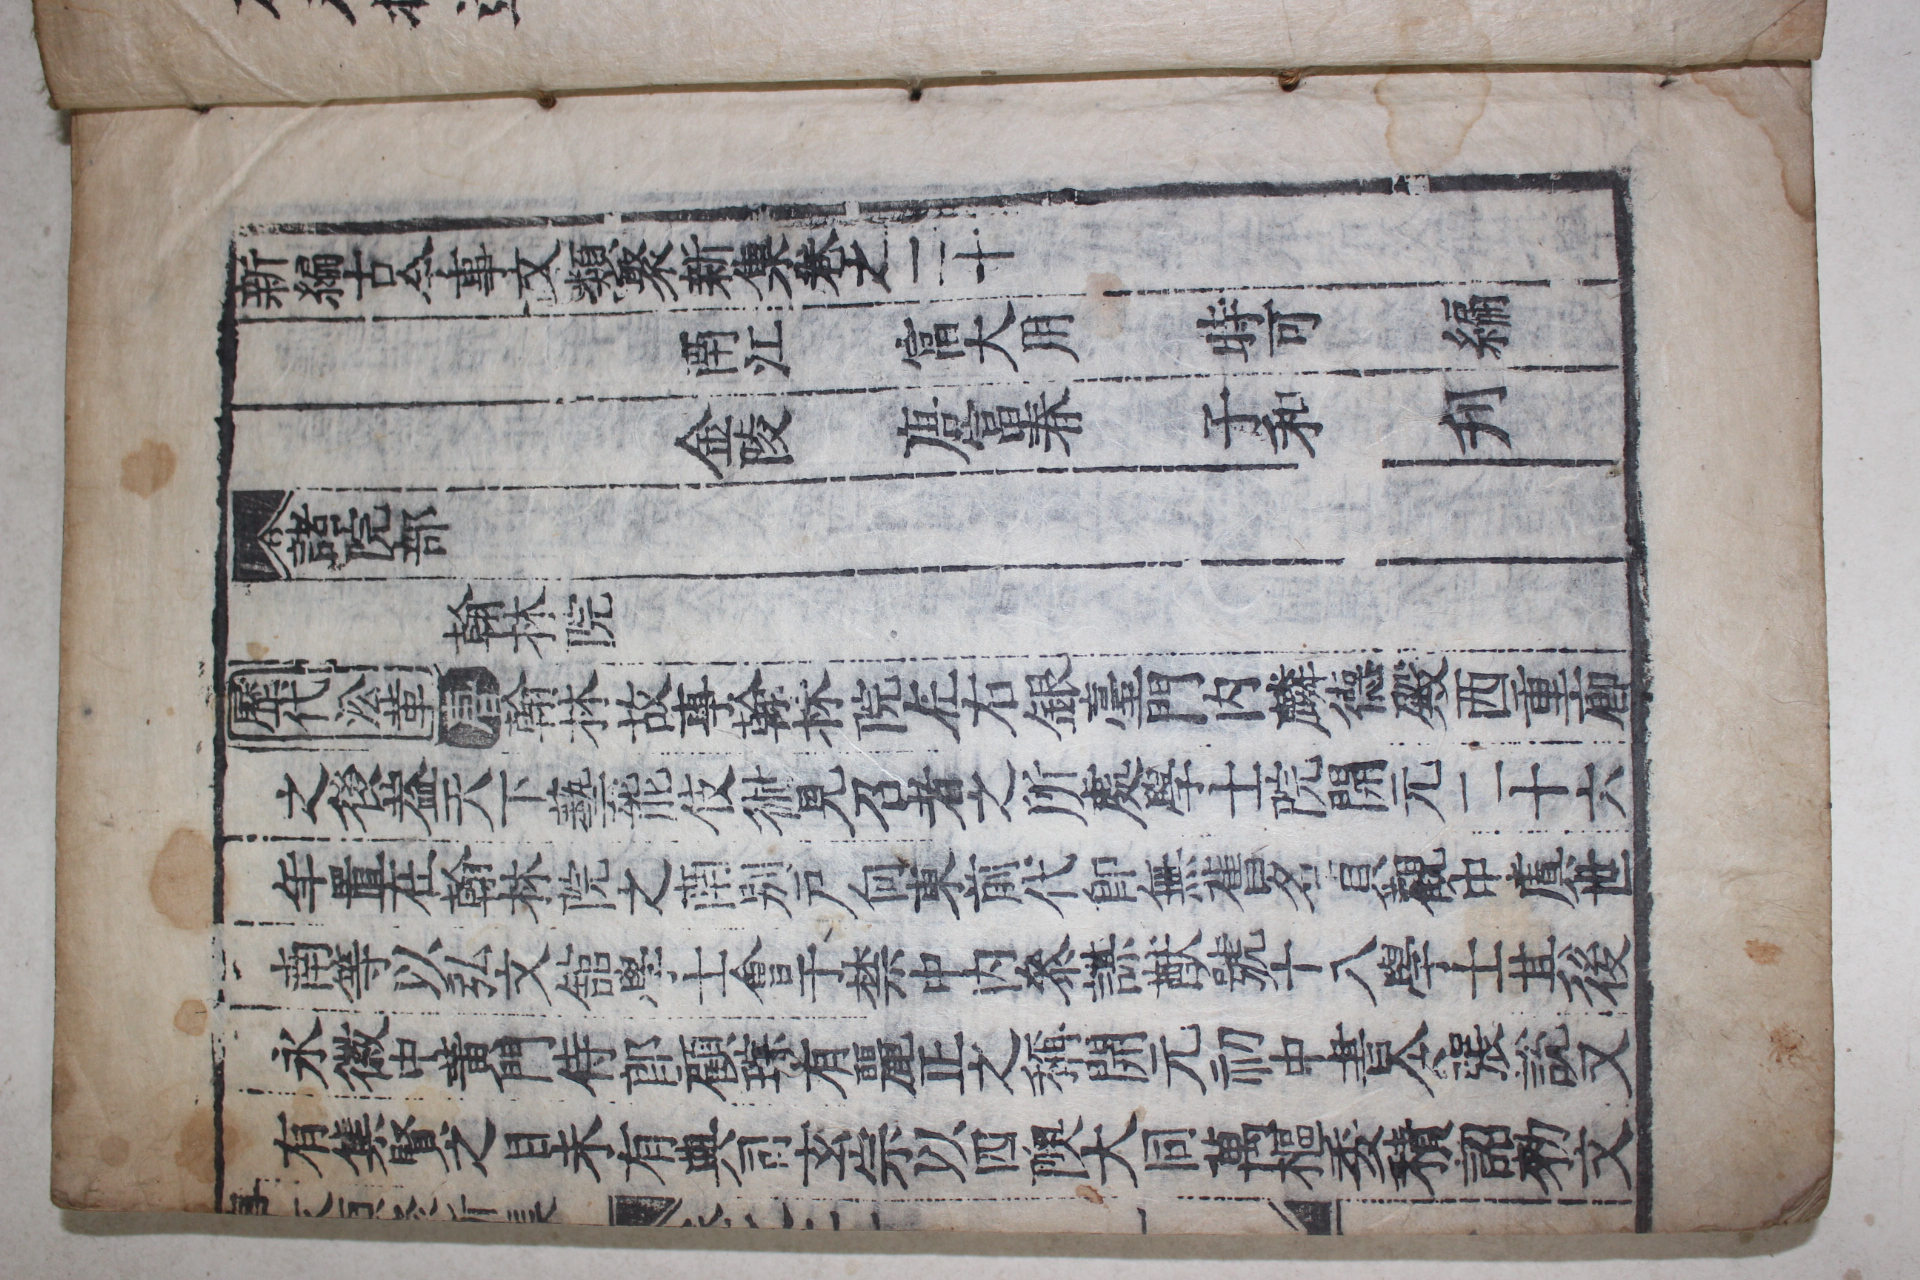 新編古今事文類聚新集卷之二十
南江 富大用 時可 編
金陵 唐富春 子和 刋
諸院部
翰林院
歷代沿革 唐翰林故事翰林院在右銀臺門内麟德殿西重廊
之後葢天下藝能伎術見召者之所處學士院開元二十六
年置在翰林院之南别戶向東前代卽無舊名貞觀中虞世
南等以弘文舘學士會于禁中内叅謀猷號十八學士其後
永徽中黄門侍郎顧琮有麗正之稱開元初中書令張說又
有集賢之目未有典司玄宗以四隩大同萬樞委積詔勑文